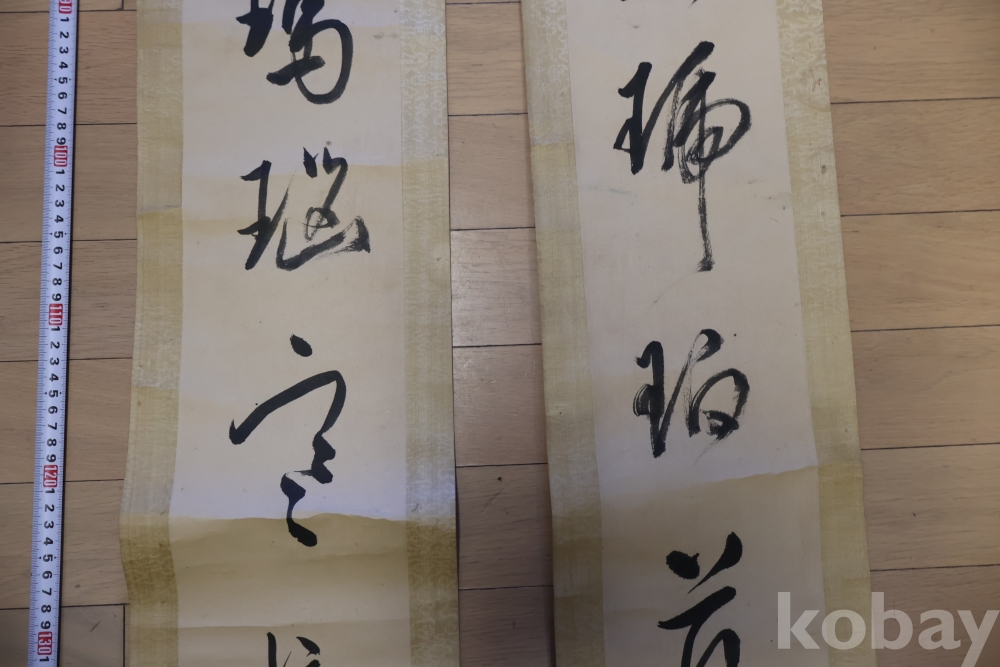 琥珀
瑪瑙寒
1 2 3 4 5 6 7 8 9 100 1 2 3 4 5 6 7 8 9 110 1 2 3 4 5 6 7 8 9 120 1 2 3 4 5 6 7 8 9 130
kobay